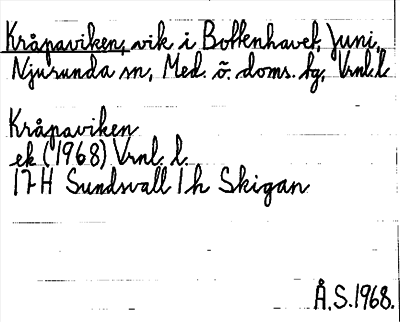 Kråpaviken, vik i Bottenhavet, Juni,
Njurunda sn, Med. ö. doms. tg, Vrnl. l
Kråpaviken
ek (1968) Vrnl. l.
17H Sundsvall 1h Skigan
Å.S. 1968.